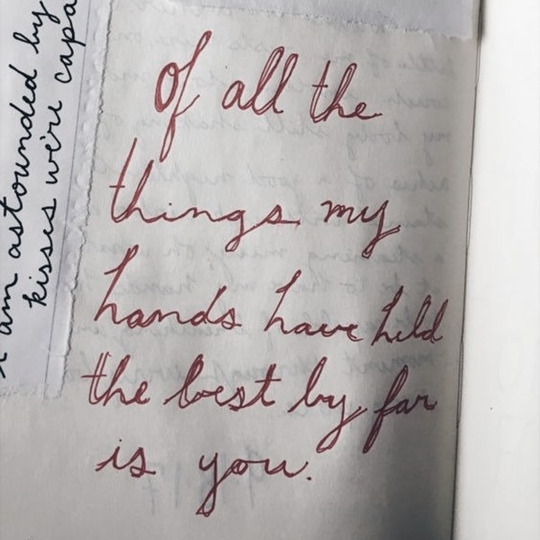 Of all the
things my
hands have held
the best by far
is you.
I am astounded by
kisses we're capa